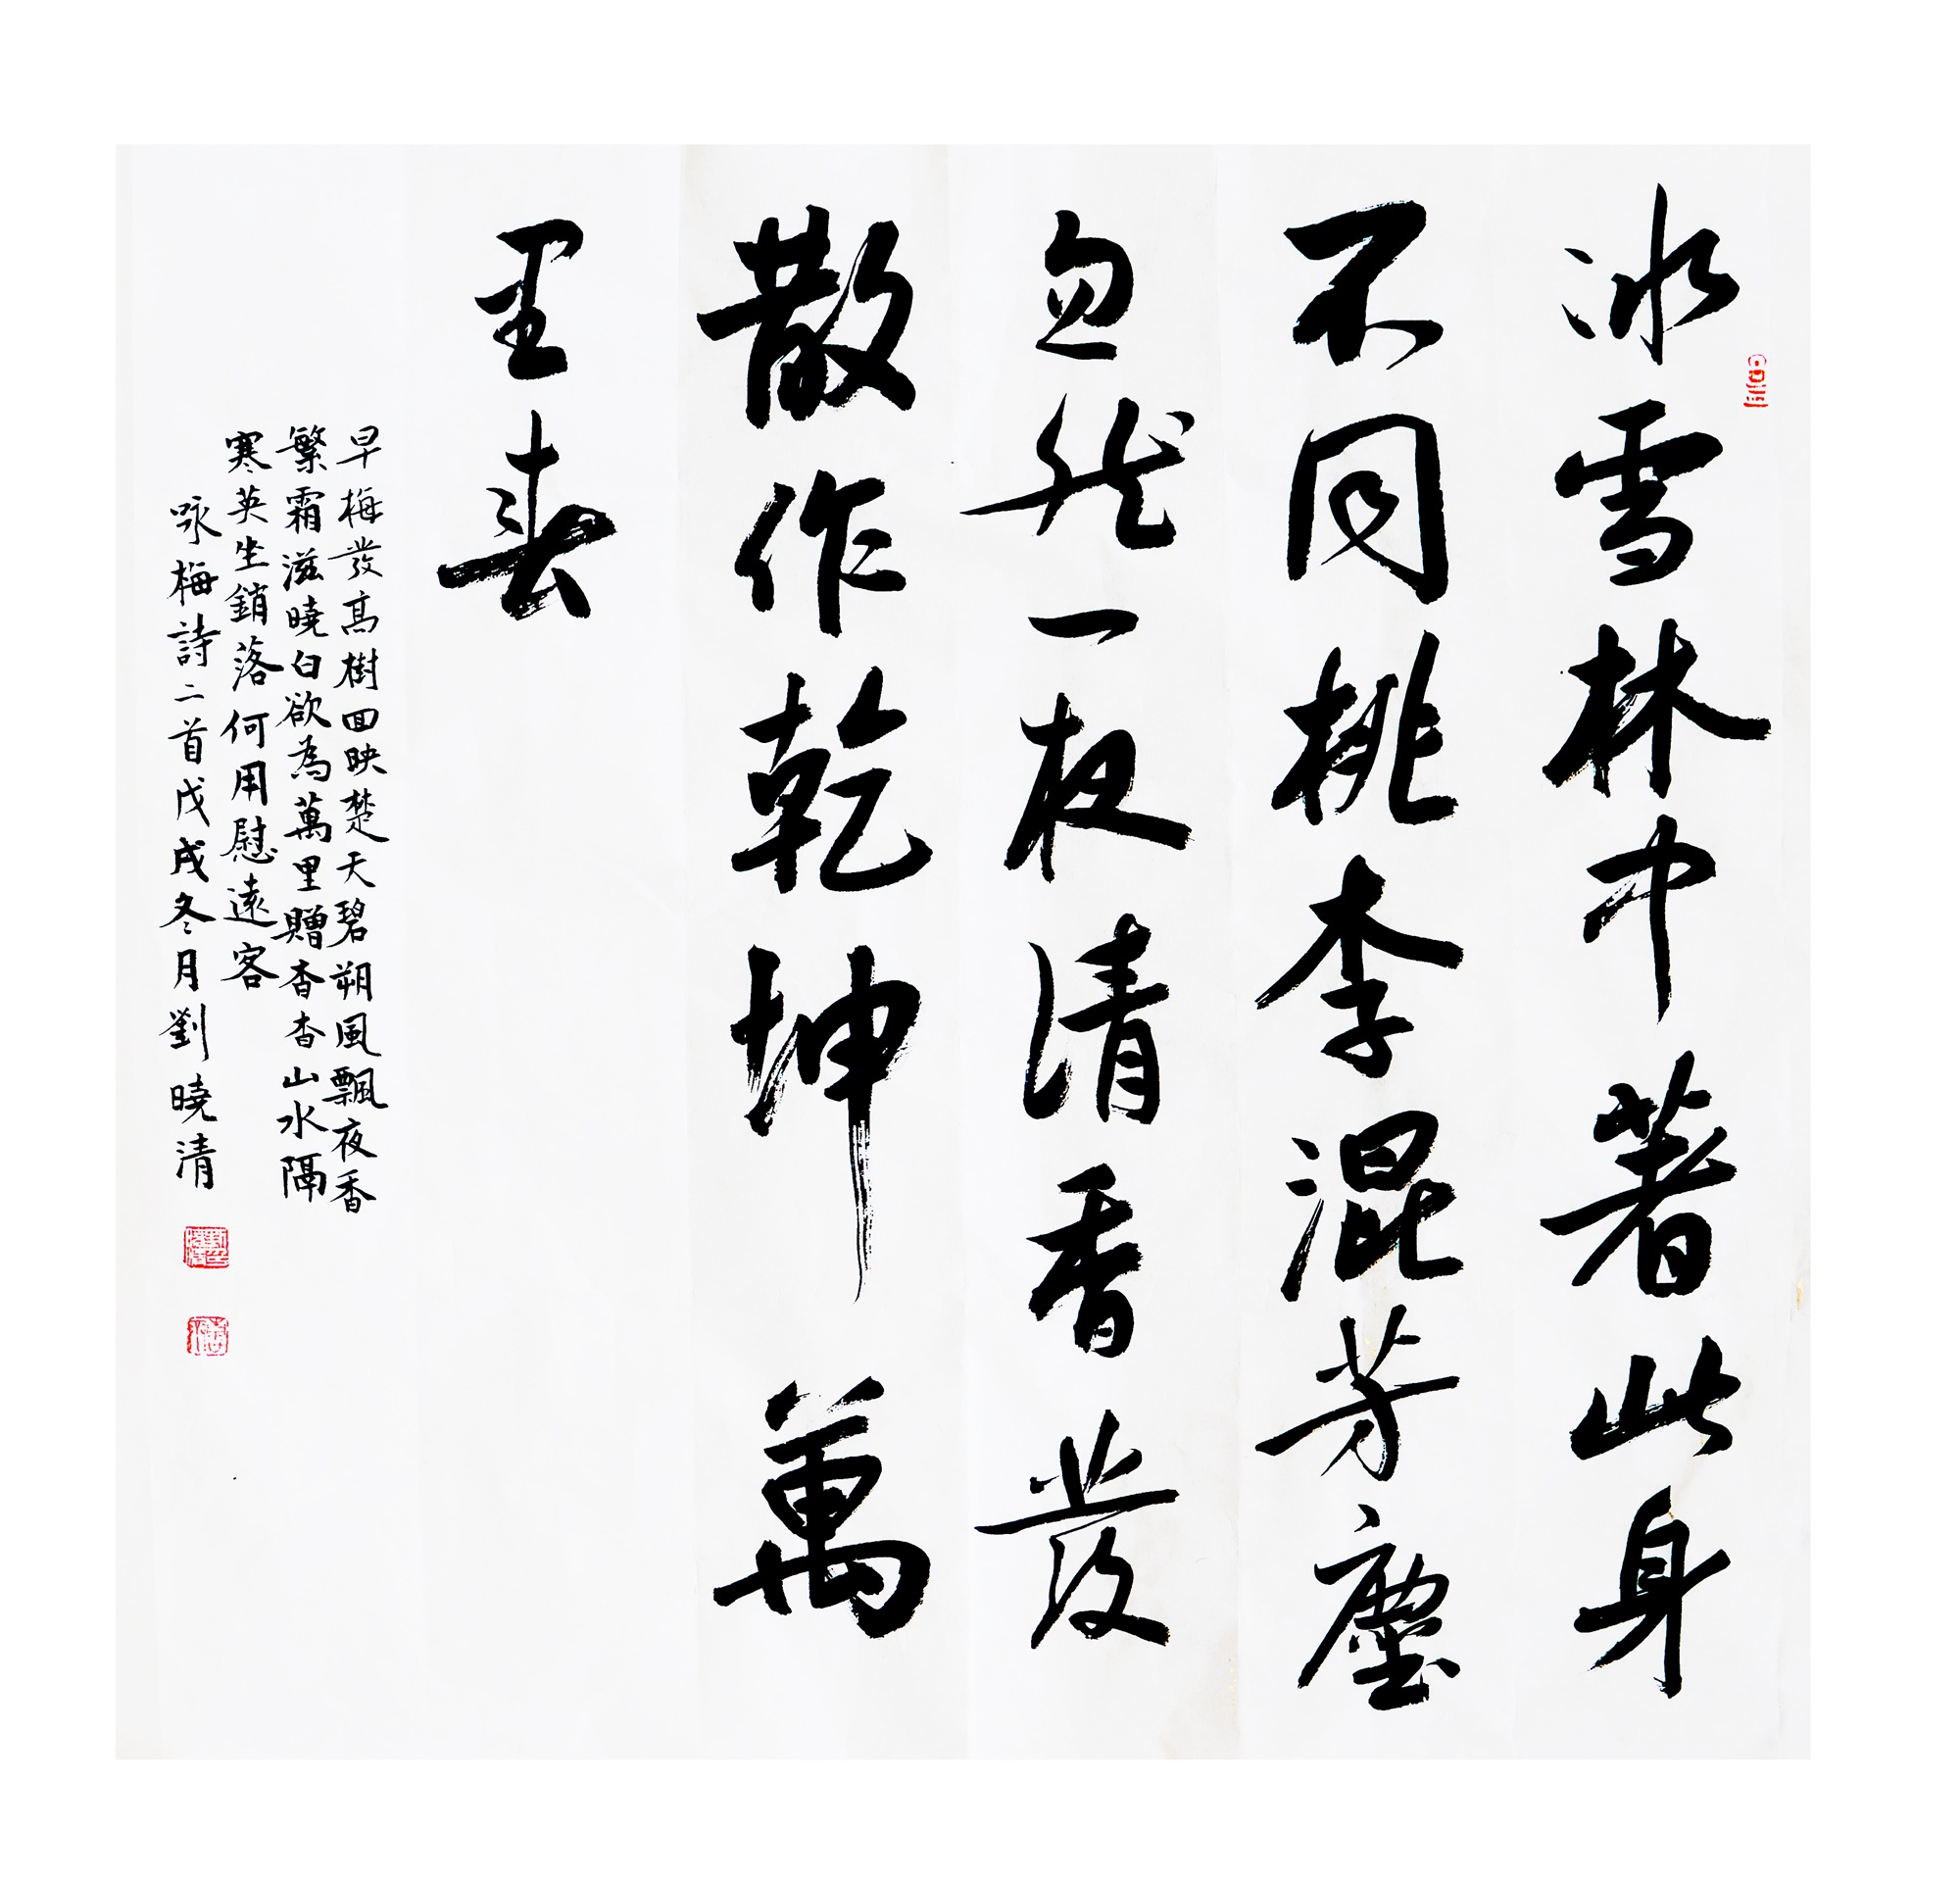 冰雪林中著此身
不同桃李混芳塵
忽然一夜清香發
散作乾坤萬
里春
早梅發高樹回映楚天碧朔風飄夜香
繁霜滋曉白欲為萬里贈杳杳山水隔
寒英坐銷落何用慰遠客
咏梅詩二首戊戌冬月劉曉清